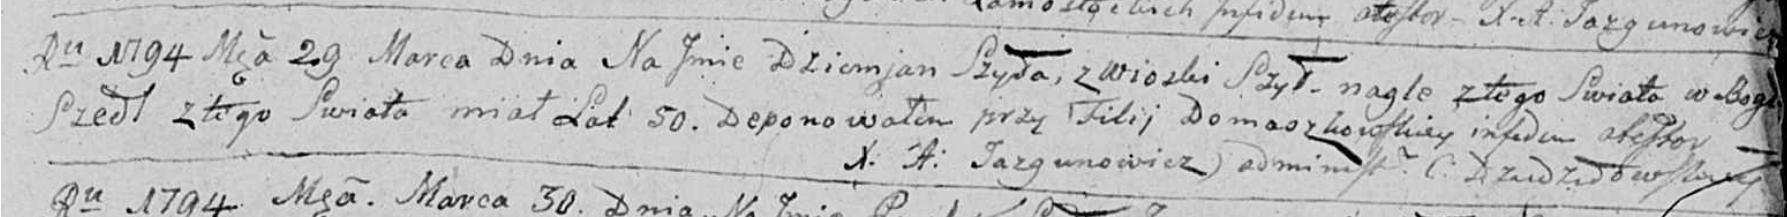 Zamosteckich infidem atestor - X. A. Jazgunowicz
Ru 1794 Mcā 29 Marca Dnia Na Jmie Dziemjan Szyła, z Wioski Szył. nagle z tego Swiata w Bogu
Szedł z tego Swiata miał Lat 50. Deponowałem przy Filij Domaszkowskiey infidem atestor
X. A: Jazgunowicz administ. C.
Ru 1794 Mcā. Marca 30. Dnia Na Jmie